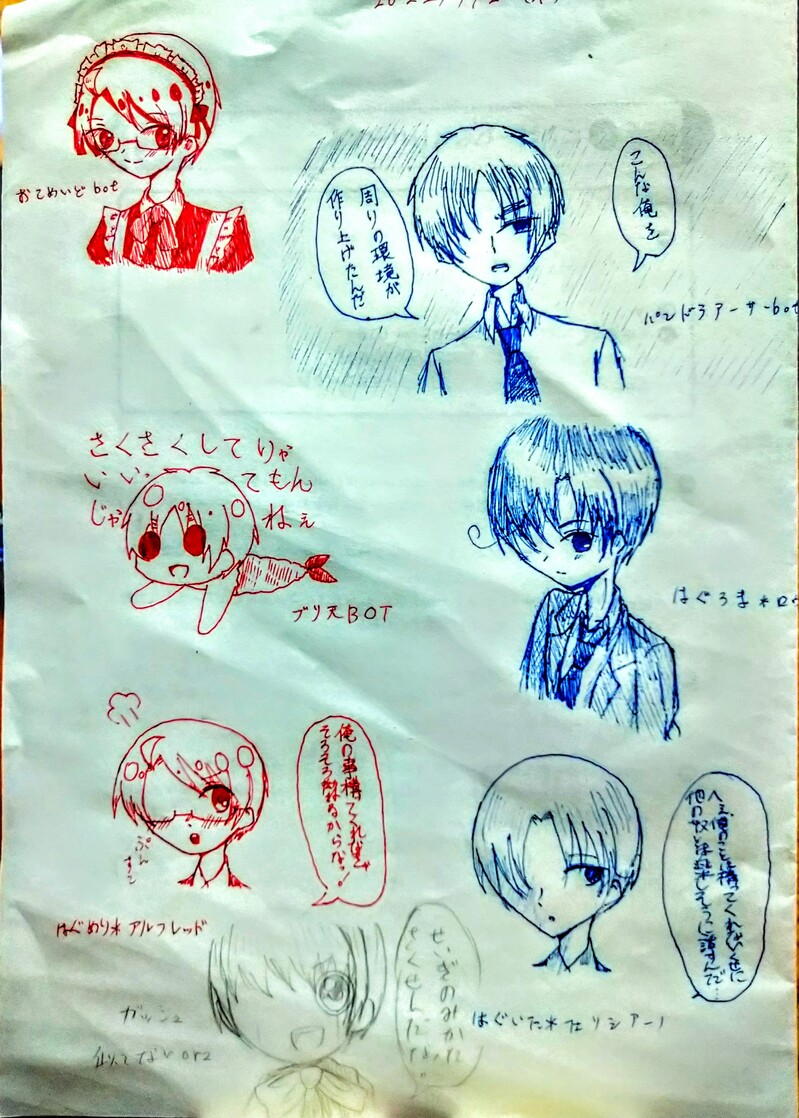 おてめいどbot
こんな俺を
周りの環境が
作り上げたんだ
パンドラアーサーbot
さくさくしてりゃ
いいってもん
じゃねぇ
ブリ天BOT
はぐろま*ロ
俺の事構てくれなきゃ
そろそろ拗ねるからなっ!
ぷん
すこ
はぐめり*アルフレッド
へぇ、俺のことは構ってくれないくせに
他の奴とは楽しそうに話すんだ…
はぐいた*フェリシアーノ
せいぎのみかた
さくせんだな!
ガッシュ
似てないorz